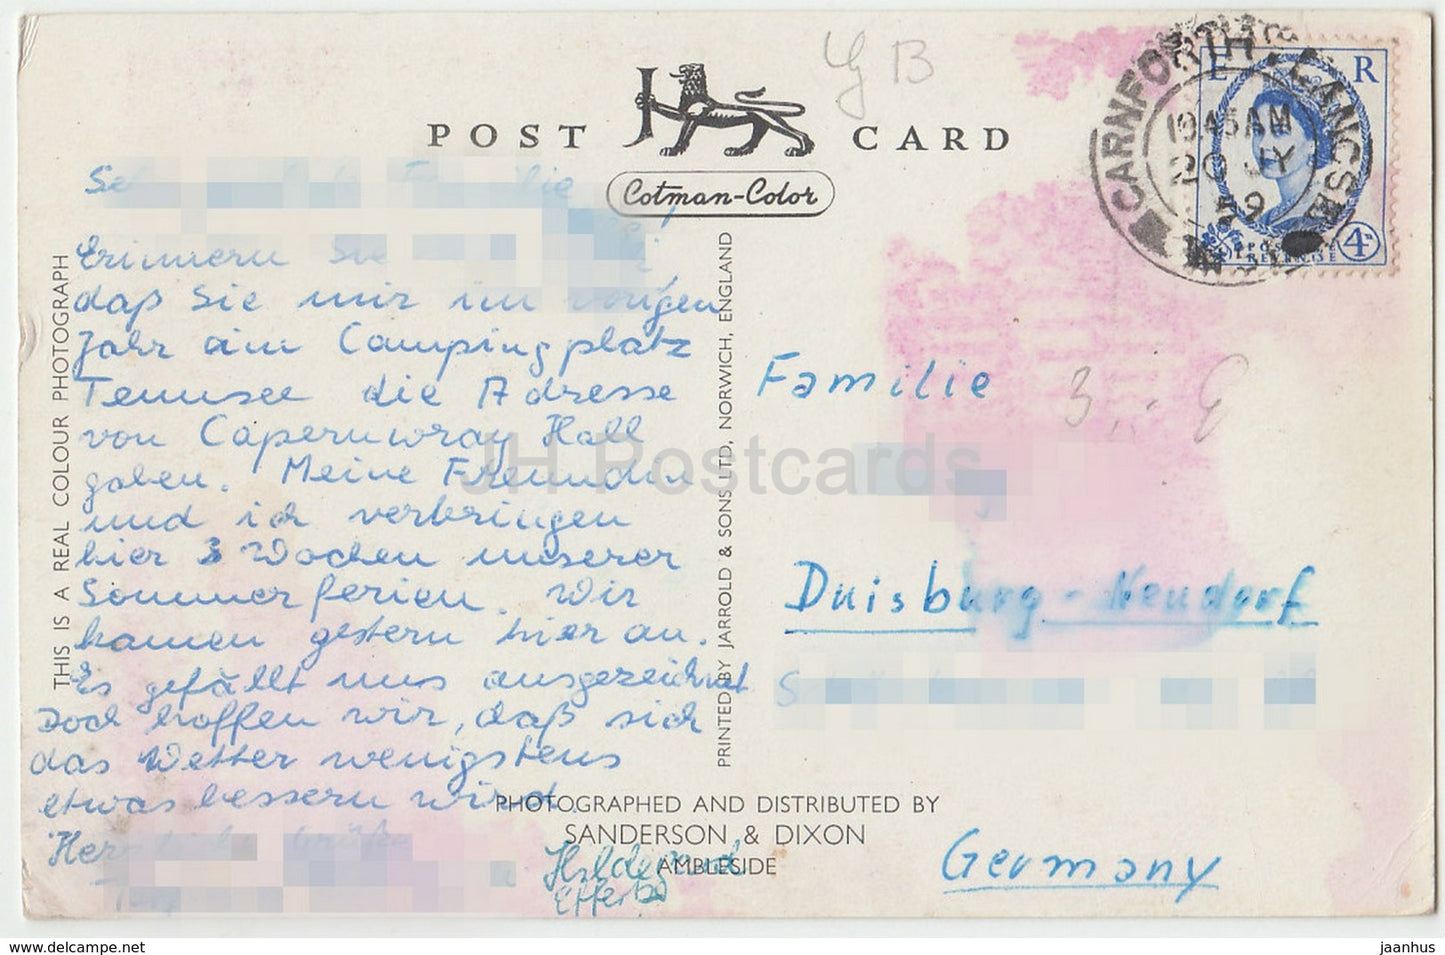 GB
POST CARD
Cotman-Color
CARNFORTH . LANCS
10.45 AM
20 JY
59
E R
POSTAGE
REVENUE
4D
THIS IS A REAL COLOUR PHOTOGRAPH
Erinnern Sie
daß Sie mir im vorigen
Jahr am Campingplatz
Tennsee die Adresse
von Capernwray Hall
gaben. Meine Freundin
und ich verbringen
hier 3 Wochen unserer
Sommerferien. Wir
kamen gestern hier an.
Es gefällt uns ausgezeichnet
Doch hoffen wir, daß sich
das Wetter wenigstens
etwas bessern wird.
Herzliche Grüße
Hildegund
PRINTED BY JARROLD & SONS LTD, NORWICH, ENGLAND
Familie
3,-
Duisburg-Neudorf
Germany
PHOTOGRAPHED AND DISTRIBUTED BY
SANDERSON & DIXON
AMBLESIDE
JH Postcards
www.delcampe.net
jaanhus